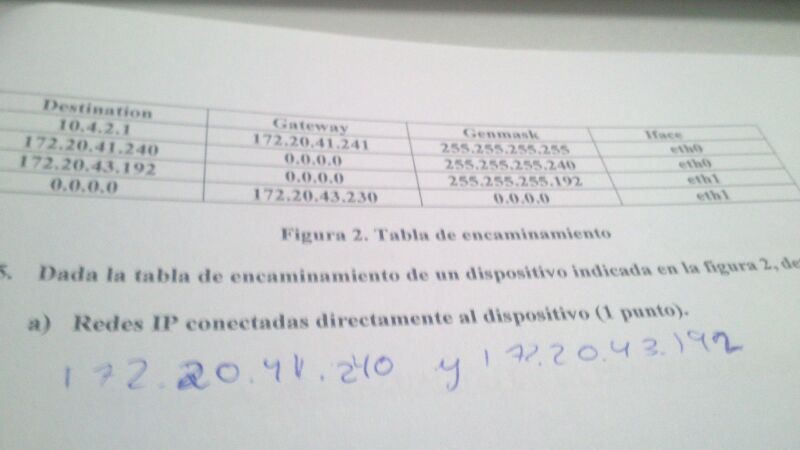 Destination Gateway Genmask Iface
10.4.2.1 172.20.41.241 255.255.255.255 eth0
172.20.41.240 0.0.0.0 255.255.255.240 eth0
172.20.43.192 0.0.0.0 255.255.255.192 eth1
0.0.0.0 172.20.43.230 0.0.0.0 eth1
Figura 2. Tabla de encaminamiento
5. Dada la tabla de encaminamiento de un dispositivo indicada en la figura 2, de
a) Redes IP conectadas directamente al dispositivo (1 punto).
172.20.41.240 y 172.20.43.192